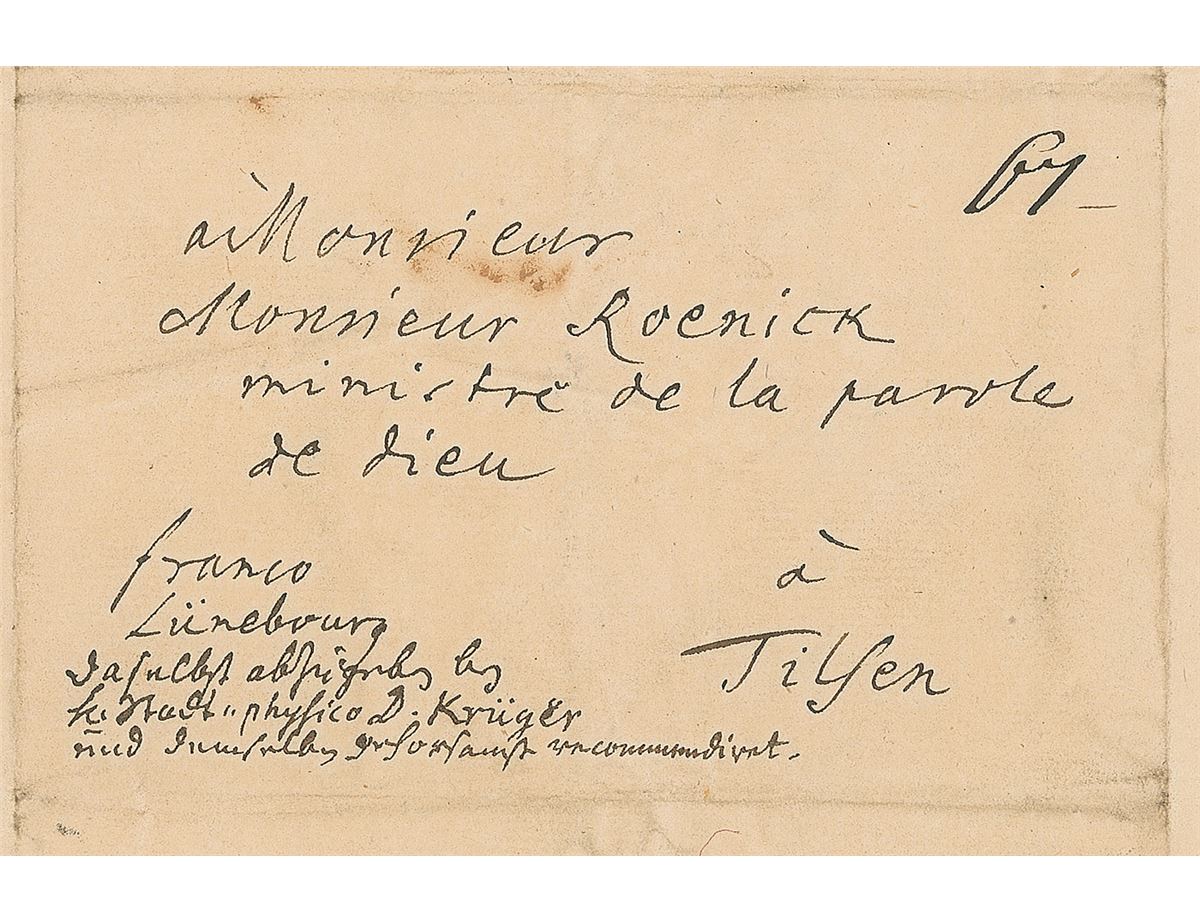 à Monsieur
Monsieur Roenick
ministre de la parole
de dieu
franco
Lünebourg
à
Tilsen
daselbst abzugeben bey
H. Stadt-physico D. Krüger
und demselben gehorsamst recommendiret.